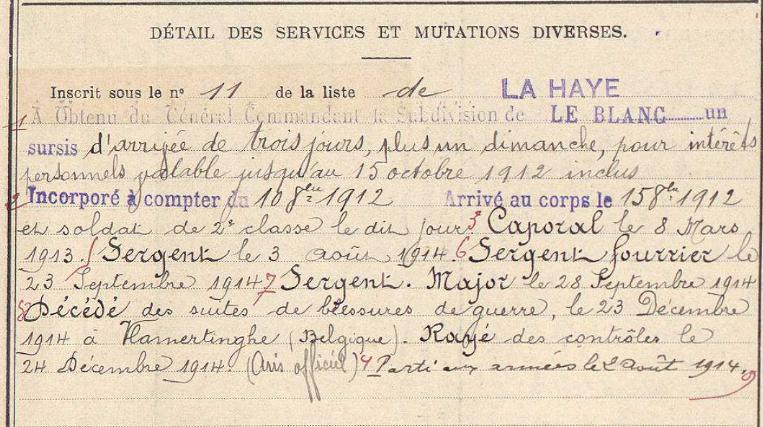 DÉTAIL DES SERVICES ET MUTATIONS DIVERSES.
Inscrit sous le n° 11 de la liste de LA HAYE
1 A Obtenu du Général Commandant la Subdivision de LE BLANC un
sursis d'arrivée de trois jours, plus un dimanche, pour intérêts
personnels valable jusqu'au 15 octobre 1912 inclus
2 Incorporé à compter du 10 8bre 1912 Arrivé au corps le 15 8bre 1912
et soldat de 2e classe le dit jour. 3 Caporal le 8 Mars
1913. 5 Sergent le 3 août 1914 6 Sergent fourrier le
23 Septembre 1914 7 Sergent. Major le 28 Septembre 1914
8 Décédé des suites de blessures de guerre, le 23 Décembre
1914 à Vlamertinghe (Belgique). Rayé des contrôles le
24 Décembre 1914. (Avis officiel) 4 Parti aux armées le 2 août 1914.